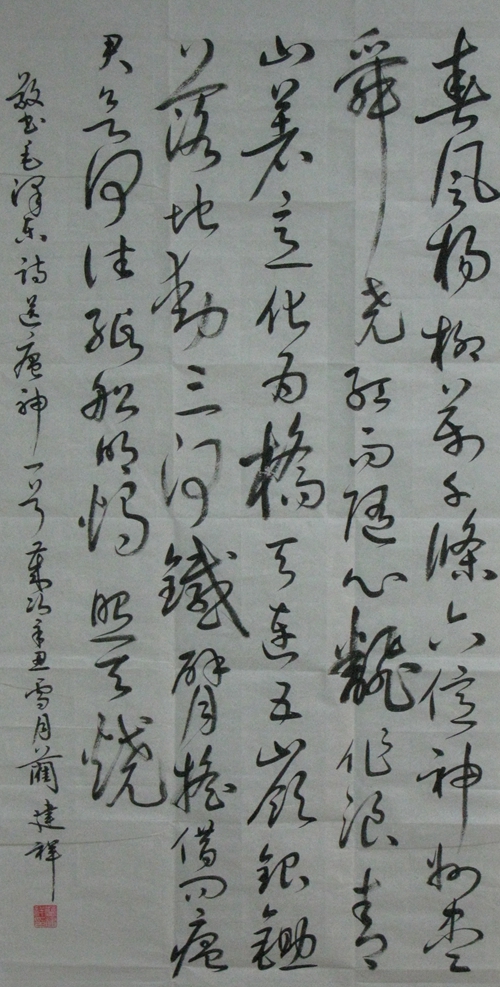 春風楊柳萬千條六億神州盡
舜堯紅雨隨心飜作浪青
山著意化為橋天連五嶺銀鋤
落地動三河鐵臂搖借問瘟
君欲何往紙船明燭照天燒
敬书毛澤东詩送瘟神一首歲次辛丑雪月藺建祥